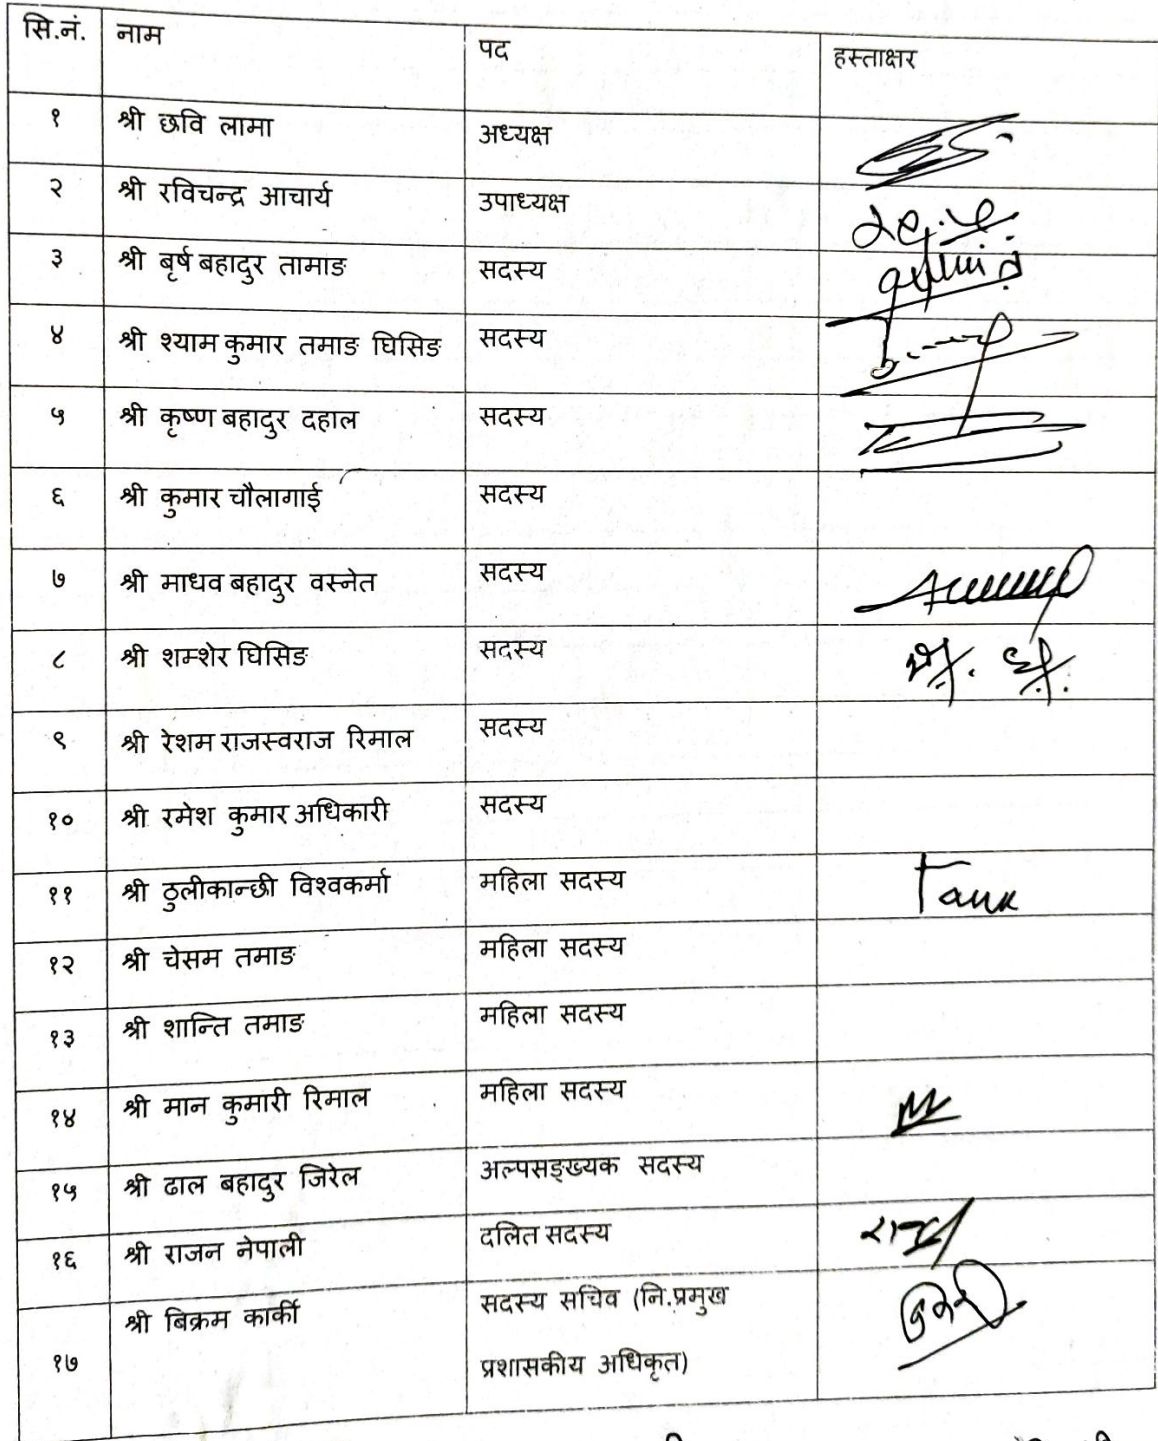 सि.नं. नाम पद हस्ताक्षर
१ श्री छवि लामा अध्यक्ष
२ श्री रविचन्द्र आचार्य उपाध्यक्ष
३ श्री बृर्ष बहादुर तामाङ सदस्य
४ श्री श्याम कुमार तमाङ घिसिङ सदस्य
५ श्री कृष्ण बहादुर दहाल सदस्य
६ श्री कुमार चौलागाई सदस्य
७ श्री माधव बहादुर वस्नेत सदस्य
८ श्री शम्शेर घिसिङ सदस्य
९ श्री रेशम राजस्वराज रिमाल सदस्य
१० श्री रमेश कुमार अधिकारी सदस्य
११ श्री ठुलीकान्छी विश्वकर्मा महिला सदस्य
१२ श्री चेसम तमाङ महिला सदस्य
१३ श्री शान्ति तमाङ महिला सदस्य
१४ श्री मान कुमारी रिमाल महिला सदस्य
१५ श्री ढाल बहादुर जिरेल अल्पसङ्ख्यक सदस्य
१६ श्री राजन नेपाली दलित सदस्य
१७ श्री बिक्रम कार्की सदस्य सचिव (नि.प्रमुख
प्रशासकीय अधिकृत)